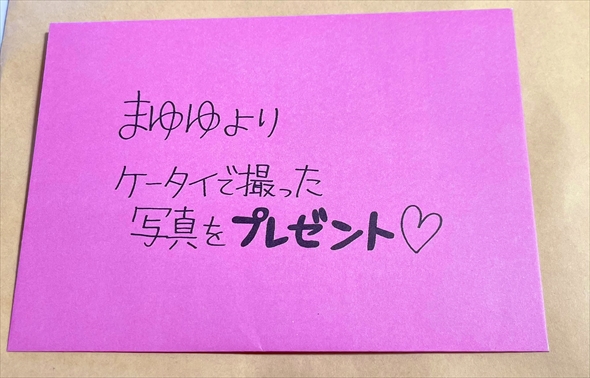 まゆゆより
ケータイで撮った
写真をプレゼント♡